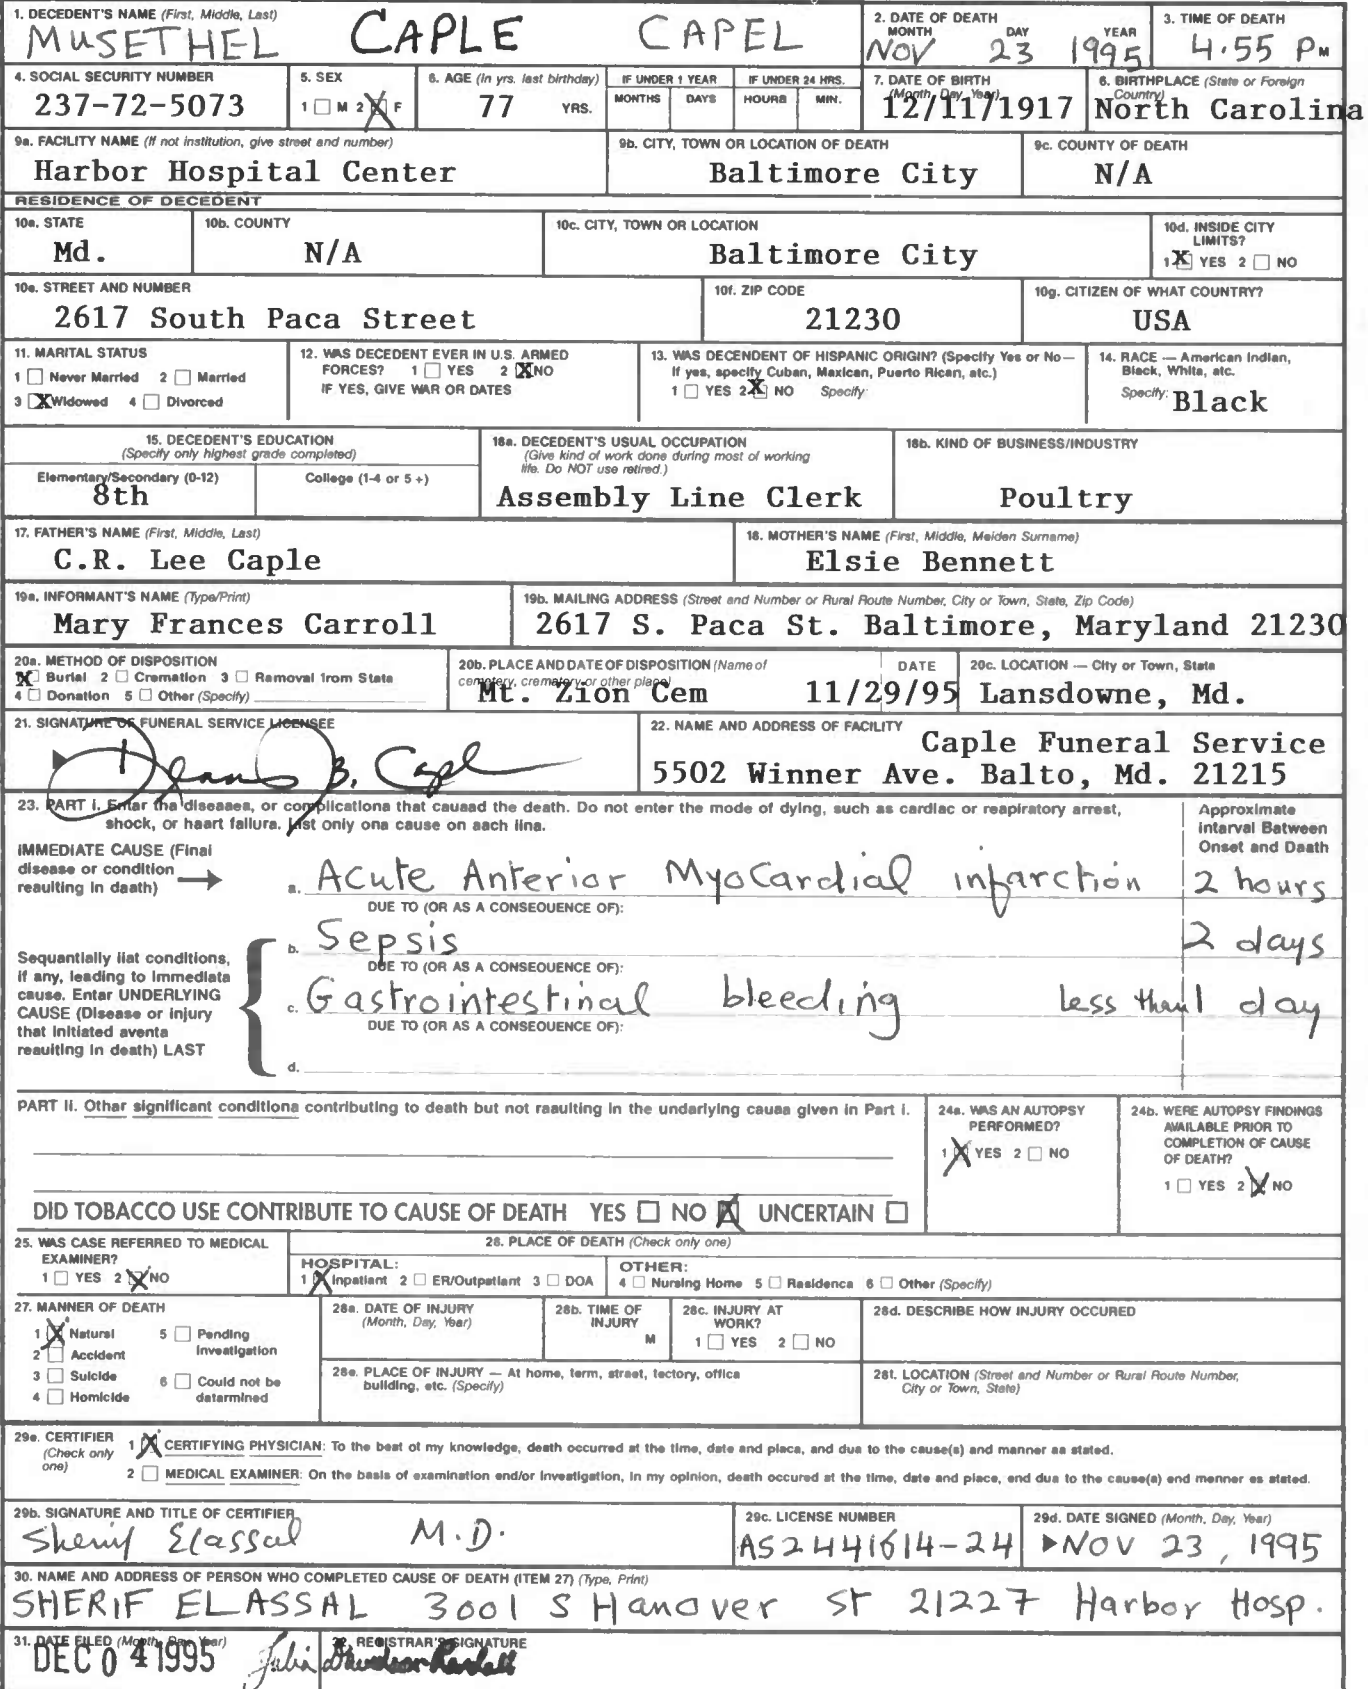 1. DECEDENT'S NAME (First, Middle, Last)
MUSETHEL CAPLE CAPEL
2. DATE OF DEATH
MONTH DAY YEAR
NOV 23 1995
3. TIME OF DEATH
4.55 PM
4. SOCIAL SECURITY NUMBER
237-72-5073
5. SEX
1 ☐ M 2 ☒ F
6. AGE (In yrs. last birthday)
77 YRS.
IF UNDER 1 YEAR
MONTHS DAYS
IF UNDER 24 HRS.
HOURS MIN.
7. DATE OF BIRTH
(Month, Day, Year)
12/11/1917
8. BIRTHPLACE (State or Foreign
Country)
North Carolina
9a. FACILITY NAME (If not institution, give street and number)
Harbor Hospital Center
9b. CITY, TOWN OR LOCATION OF DEATH
Baltimore City
9c. COUNTY OF DEATH
N/A
RESIDENCE OF DECEDENT
10a. STATE
Md.
10b. COUNTY
N/A
10c. CITY, TOWN OR LOCATION
Baltimore City
10d. INSIDE CITY
LIMITS?
1 ☒ YES 2 ☐ NO
10e. STREET AND NUMBER
2617 South Paca Street
10f. ZIP CODE
21230
10g. CITIZEN OF WHAT COUNTRY?
USA
11. MARITAL STATUS
1 ☐ Never Married 2 ☐ Married
3 ☒ Widowed 4 ☐ Divorced
12. WAS DECEDENT EVER IN U.S. ARMED
FORCES? 1 ☐ YES 2 ☒ NO
IF YES, GIVE WAR OR DATES
13. WAS DECENDENT OF HISPANIC ORIGIN? (Specify Yes or No—
If yes, specify Cuban, Maxican, Puerto Rican, atc.)
1 ☐ YES 2 ☒ NO Specify:
14. RACE — American Indian,
Black, White, atc.
Specify: Black
15. DECEDENT'S EDUCATION
(Specify only highest grade completed)
Elementary/Secondary (0-12)
8th
College (1-4 or 5 +)
16a. DECEDENT'S USUAL OCCUPATION
(Give kind of work done during most of working
life. Do NOT use retired.)
Assembly Line Clerk
16b. KIND OF BUSINESS/INDUSTRY
Poultry
17. FATHER'S NAME (First, Middle, Last)
C.R. Lee Caple
18. MOTHER'S NAME (First, Middle, Maiden Surname)
Elsie Bennett
19a. INFORMANT'S NAME (Type/Print)
Mary Frances Carroll
19b. MAILING ADDRESS (Street and Number or Rural Route Number, City or Town, State, Zip Code)
2617 S. Paca St. Baltimore, Maryland 21230
20a. METHOD OF DISPOSITION
☒ Burial 2 ☐ Cremation 3 ☐ Removal from State
4 ☐ Donation 5 ☐ Other (Specify)
20b. PLACE AND DATE OF DISPOSITION (Name of
cemetery, crematory or other place)
DATE
Mt. Zion Cem 11/29/95
20c. LOCATION — City or Town, State
Lansdowne, Md.
21. SIGNATURE OF FUNERAL SERVICE LICENSEE
B. Caple
22. NAME AND ADDRESS OF FACILITY
Caple Funeral Service
5502 Winner Ave. Balto, Md. 21215
23. PART I. Enter the diseases, or complications that caused the death. Do not enter the mode of dying, such as cardiac or respiratory arrest,
shock, or heart failure. List only one cause on each line.
Approximate
Interval Between
Onset and Death
IMMEDIATE CAUSE (Final
disease or condition
resulting in death) →
a. Acute Anterior Myocardial infarction 2 hours
DUE TO (OR AS A CONSEQUENCE OF):
Sequentially list conditions,
if any, leading to immediate
cause. Enter UNDERLYING
CAUSE (Disease or injury
that initiated events
resulting in death) LAST
b. Sepsis 2 days
DUE TO (OR AS A CONSEQUENCE OF):
c. Gastrointestinal bleeding less than 1 day
DUE TO (OR AS A CONSEQUENCE OF):
d.
PART II. Other significant conditions contributing to death but not resulting in the underlying cause given in Part I.
24a. WAS AN AUTOPSY
PERFORMED?
1 ☒ YES 2 ☐ NO
24b. WERE AUTOPSY FINDINGS
AVAILABLE PRIOR TO
COMPLETION OF CAUSE
OF DEATH?
1 ☐ YES 2 ☒ NO
DID TOBACCO USE CONTRIBUTE TO CAUSE OF DEATH YES ☐ NO ☒ UNCERTAIN ☐
25. WAS CASE REFERRED TO MEDICAL
EXAMINER?
1 ☐ YES 2 ☒ NO
26. PLACE OF DEATH (Check only one)
HOSPITAL:
1 ☒ Inpatient 2 ☐ ER/Outpatient 3 ☐ DOA
OTHER:
4 ☐ Nursing Home 5 ☐ Residence 6 ☐ Other (Specify)
27. MANNER OF DEATH
1 ☒ Natural 5 ☐ Pending
Investigation
2 ☐ Accident
3 ☐ Suicide 6 ☐ Could not be
determined
4 ☐ Homicide
28a. DATE OF INJURY
(Month, Day, Year)
28b. TIME OF
INJURY
M
28c. INJURY AT
WORK?
1 ☐ YES 2 ☐ NO
28d. DESCRIBE HOW INJURY OCCURED
28e. PLACE OF INJURY — At home, term, street, tectory, office
building, etc. (Specify)
28f. LOCATION (Street and Number or Rural Route Number,
City or Town, State)
29a. CERTIFIER
(Check only
one)
1 ☒ CERTIFYING PHYSICIAN: To the best of my knowledge, death occurred at the time, date and place, and due to the cause(s) and manner as stated.
2 ☐ MEDICAL EXAMINER: On the basis of examination and/or investigation, in my opinion, death occured at the time, date and place, and due to the cause(s) and manner as stated.
29b. SIGNATURE AND TITLE OF CERTIFIER
Sherif Elassal M.D.
29c. LICENSE NUMBER
AS2441614-24
29d. DATE SIGNED (Month, Day, Year)
NOV 23, 1995
30. NAME AND ADDRESS OF PERSON WHO COMPLETED CAUSE OF DEATH (ITEM 27) (Type, Print)
SHERIF ELASSAL 3001 S Hanover St 21227 Harbor Hosp.
31. DATE FILED (Month, Day, Year)
DEC 04 1995
32. REGISTRAR'S SIGNATURE
Julia Davidson-Randall